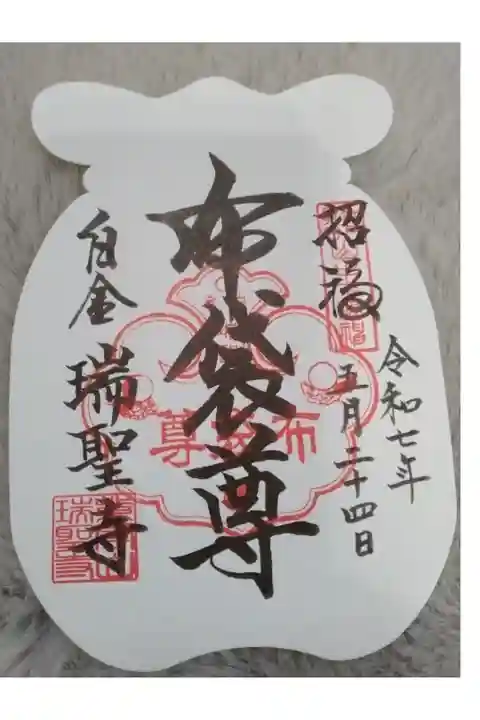 招福
令和七年
五月二十四日
布袋尊
白金
瑞聖寺
布袋尊